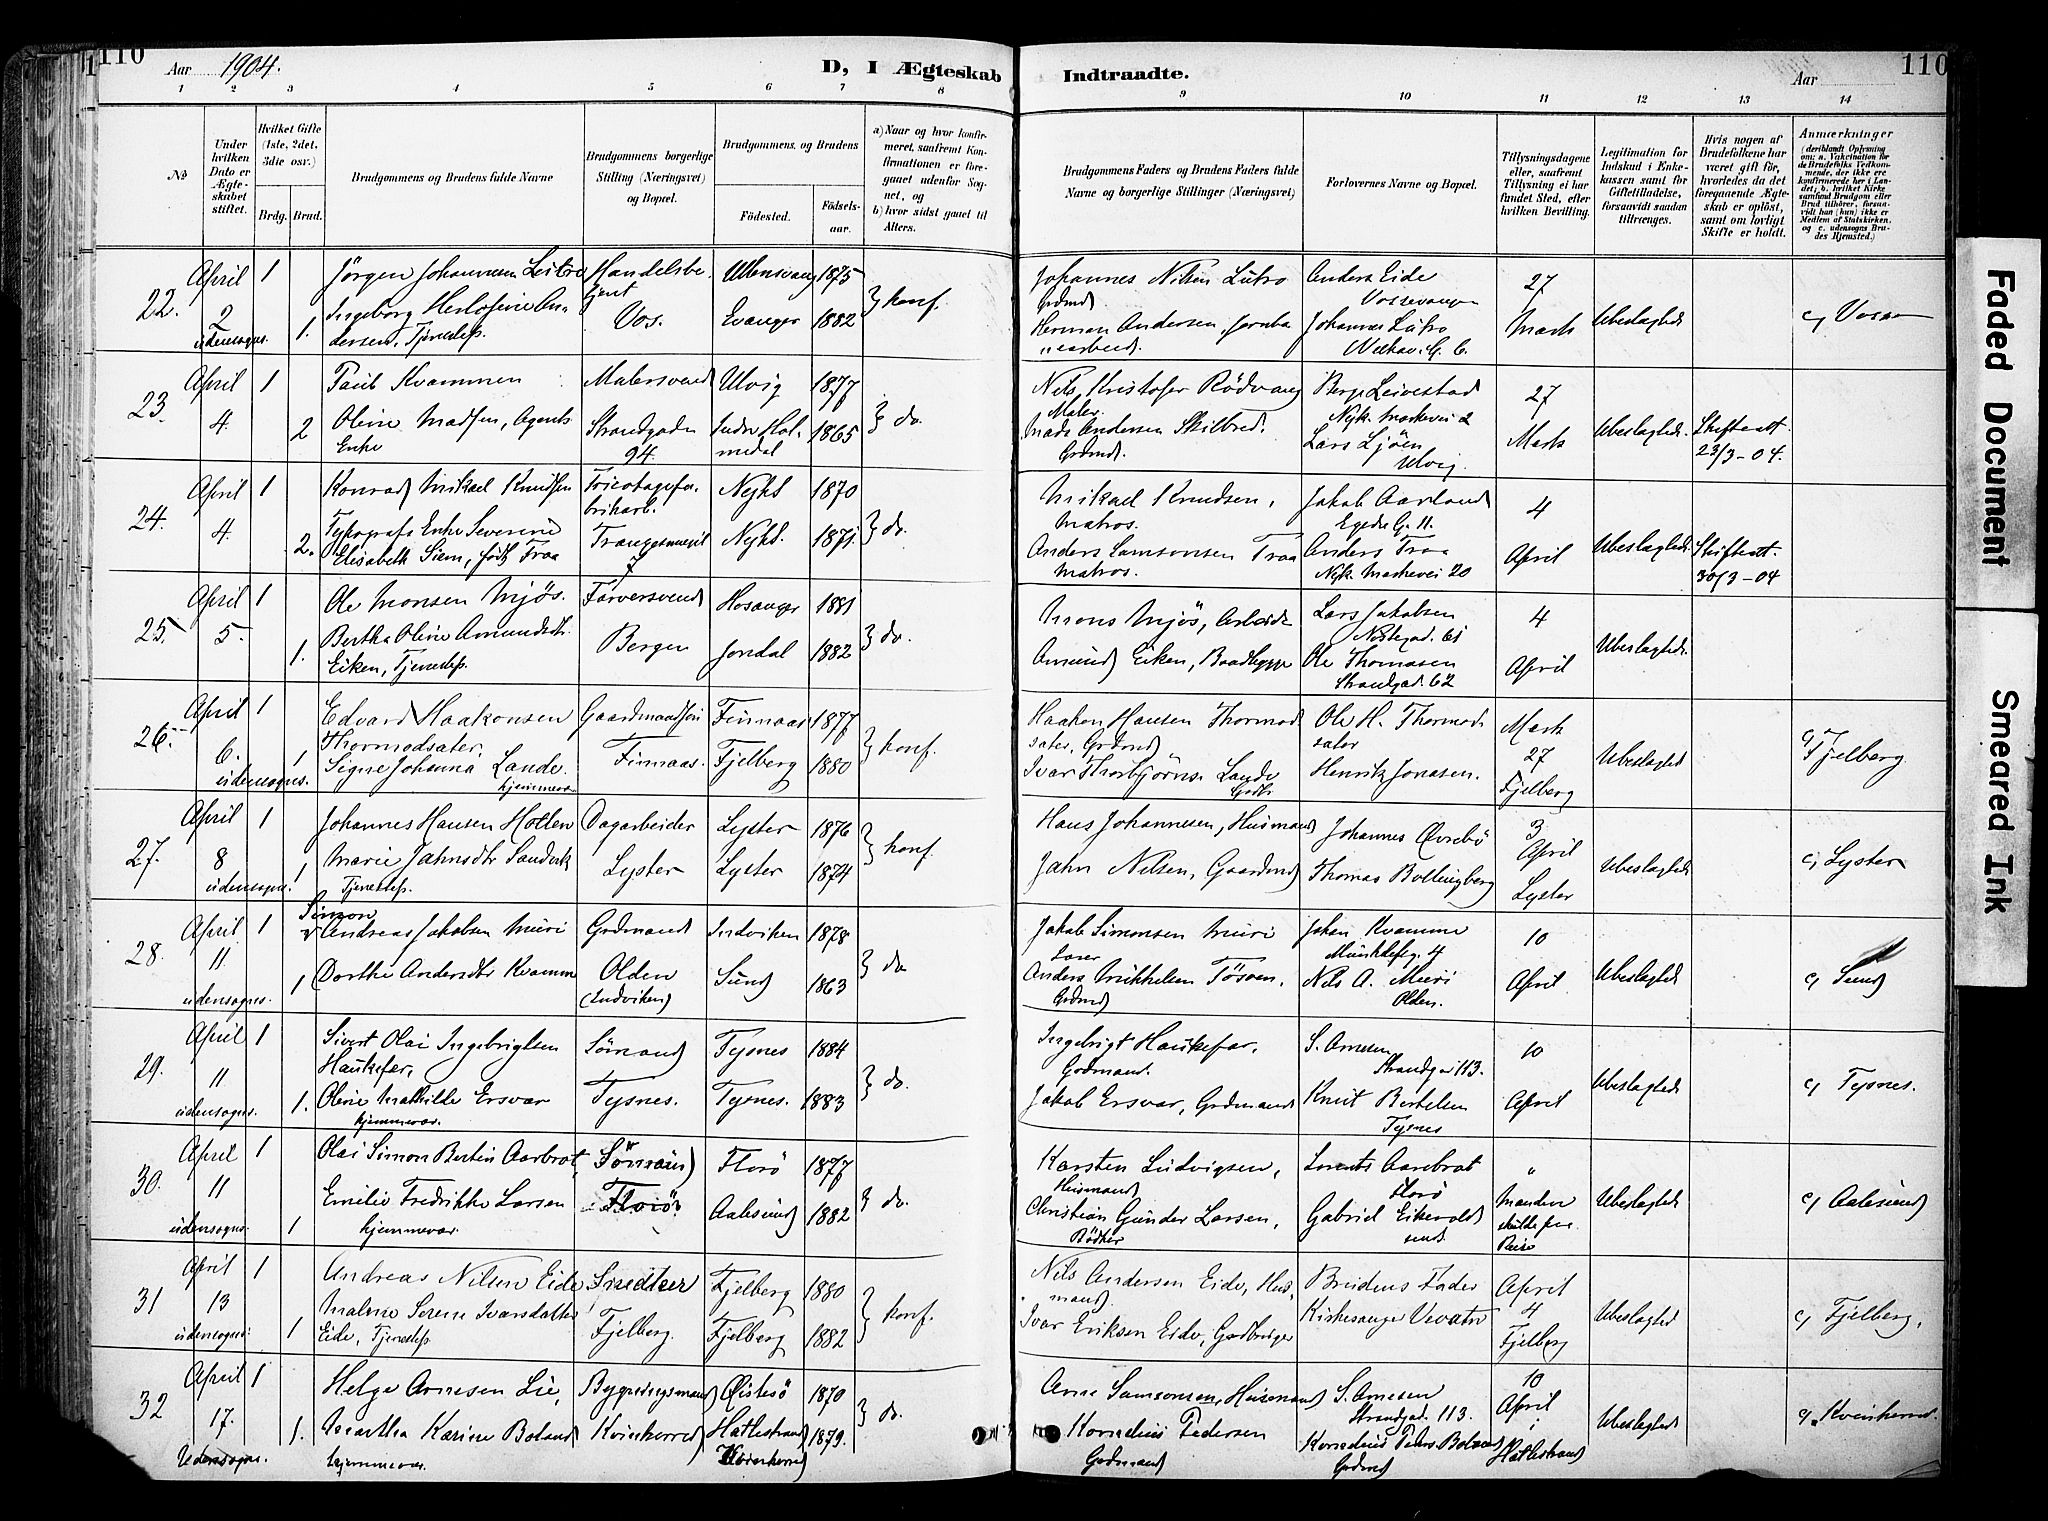 110
Aar 1904.
D, I Ægteskab Indtraadte.
Aar
110
1 2 3 4 5 6 7 8 9 10 11 12 13 14
No
Under hvilken Dato er Ægteskabet stiftet.
Hvilket Gifte (1ste, 2det, 3die osv.)
Brdg. Brud.
Brudgommens og Brudens fulde Navne
Brudgommens borgerlige Stilling (Næringsvei) og Bopæl.
Brudgommens og Brudens
Födested.
Födselsaar.
a) Naar og hvor konfirmeret, saafremt Konfirmationen er foregaaet udenfor Sognet, og
b) hvor sidst gaaet til Alters.
Brudgommens Faders og Brudens Faders fulde Navne og borgerlige Stillinger (Næringsvei)
Forlovernes Navne og Bopæl.
Tillysningsdagene eller, saafremt Tillysning ei har fundet Sted, efter hvilken Bevilling.
Legitimation for Indskud i Enkekassen samt for Giftetilladelse, forsaavidt saadan tiltrænges.
Hvis nogen af Brudefolkene har været gift för, hvorledes da det foregaaende Ægteskab er oplöst, samt om lovligt Skifte er holdt.
Anmærkninger (deriblandt Oplysning om: a. Vaccination for de Brudefolks Vedkommende, der ikke ere konfirmerede her i Landet; b. hvilket Kirkesamfund Brudgom eller Brud tilhörer, forsaavidt han (hun) ikke er Medlem af Statskirken, og c. udensogns Brudes Hjemsted.)
22. April 2 udensogns. 1 1.
Jörgen Johannesen
Ingeborg Andersen, Tjenestep.
Handelsbetjent Vos.
Ullensvang 1875
Evanger 1882
konf.
Johannes Nilsen Lutro Grdmd
Herman Andersen,
Anders Eide Vossevangen
Johannes Lutro
27 Marts
Ubeslægtede
c) Voss
23. April 4 1 2
Paul Kvammen
Oline Madsen, Agents Enke
Malersvend Strandgaden 94.
Ulvig 1877
Indre Holmedal 1865
do.
Nils Kristofer Rödvang Maler.
Mads Andersen Skilbred. Grdmd.
Berge Leivestad Nyk. Markevei 2
Lars Ljöen Ulvig.
27 Marts
Ubeslægtede.
Skifteatt. 23/3-04.
24. April 4 1 2.
Konrad Mikael Knudsen
Typografs Enke Severine Elisabeth Siem, födt Traa
Tricotagefabrikarb.
Nykt 1870
Nykt. 1871.
do.
Mikael Knudsen, Matros.
Anders Samsonsen Traa Matros.
Jakob Aarland Egedes G. 11.
Anders Traa Nyk. Markevei 20
4 April
Ubeslægtede
Skifteatt. 30/3-04
25. April 5. 1 1.
Ole Monsen Mjös.
Bertha Oline Amundsdtr. Eiken, Tjenestep.
Farversvend Bergen
Hosanger 1881
Jondal 1882
do.
Mons Mjös, Arbeider
Amund Eiken, Baadbygger
Lars Jakobsen Nöstegad. 61
Ole Thomasen Strandgad. 62
4 April
Ubeslægtede.
26. April 6. udensogns. 1 1
Edvard Haakonsen Thormodsater.
Signe Johanna Lande. hjemmevær.
Gaardmandssön Finnaas.
Finnaas 1877
Fjelberg 1880
konf.
Haakon Hansen Thormodsater, Grdmd.
Ivar Thorbjörns. Lande Grdbr.
Ole H. Thormodsater
Henrik Jonasen.
Marts 27 Fjelberg
Ubeslægted
c) Fjelberg.
27. April 8 udensogns. 1 1
Johannes Hansen Molten
Marie Jahnsdtr Sandvik Tjenestep.
Dagarbeider Lyster
Lyster 1876
Lyster 1874
konf.
Hans Johannesen, Husmand
Jahn Nilsen, Gaardmd
Johannes Övrebö
Thomas Bollingberg
3 April Lyster
Ubeslægtede
c) Lyster
28. April 11 udensogns. 1 1
Simon Andreas Jakobsen Muri
Dorthe Andersdtr Kvamme
Grdmand Olden (Indviken)
Indviken 1878
Sund 1863
do
Jakob Simonsen Muri
Anders Mikkelsen Tösven, Grdmd
Johan Kvamme
Nils A. Muri Olden.
10 April
Ubeslægtede
c) Sund
29. April 11 udensogns. 1 1.
Sivert Olai Ingebrigtsen Haukefær,
Oline Mathilde Ersvær hjemmevær.
Sömand Tysnes.
Tysnes 1884
Tysnes. 1883
do.
Ingebrigt Haukefær, Grdmand.
Jakob Ersvær, Grdmand
S. Arnesen Strandga 113.
Knut Bertelsen Tysnes
10 April
Ubeslægtede
c) Tysnes.
30. April 11 udensogns. 1 1
Olai Simon Bertin Aarbrot,
Emilie Fredrikke Larsen hjemmevær.
Sömand Florö.
Florö 1877
Aalesund 1882
do.
Karsten Ludvigsen, Husmand
Christian Gunder Larsen, Bödker
Lorents Aarebrot Florö
Gabriel Eikevold
" Manden
Ubeslægtede
c) Aalesund
31 April 13 udensogns. 1 1
Andreas Nilsen Eide
Malene Serene Ivarsdatter Eide, Tjenestep
Snedker Fjelberg.
Fjelberg 1880
Fjelberg 1882
konf.
Nils Andersen Eide, Husmand.
Ivar Eriksen Eide, Grdbruger
Brudens Fader
Kirkesanger
April 4 Fjelberg
Ubeslægted
c) Fjelberg.
32 April 17. Udensogns. 1 1.
Helge Arnesen Lie,
Martha Karine Boland hjemmevær.
Bygningsmand Kvinherred
Östesö 1870
Hatlestrand Kvinherred 1879.
do.
Arne Samsonsen, Husmand
Kornelius Pedersen Grdmand
S. Arnesen Strandgad. 113.
Kornelius Peders. Boland Grdmd
10 April i Hatlestrand
Ubeslægted
c) Kvinherred.
Faded Document
Smeared Ink